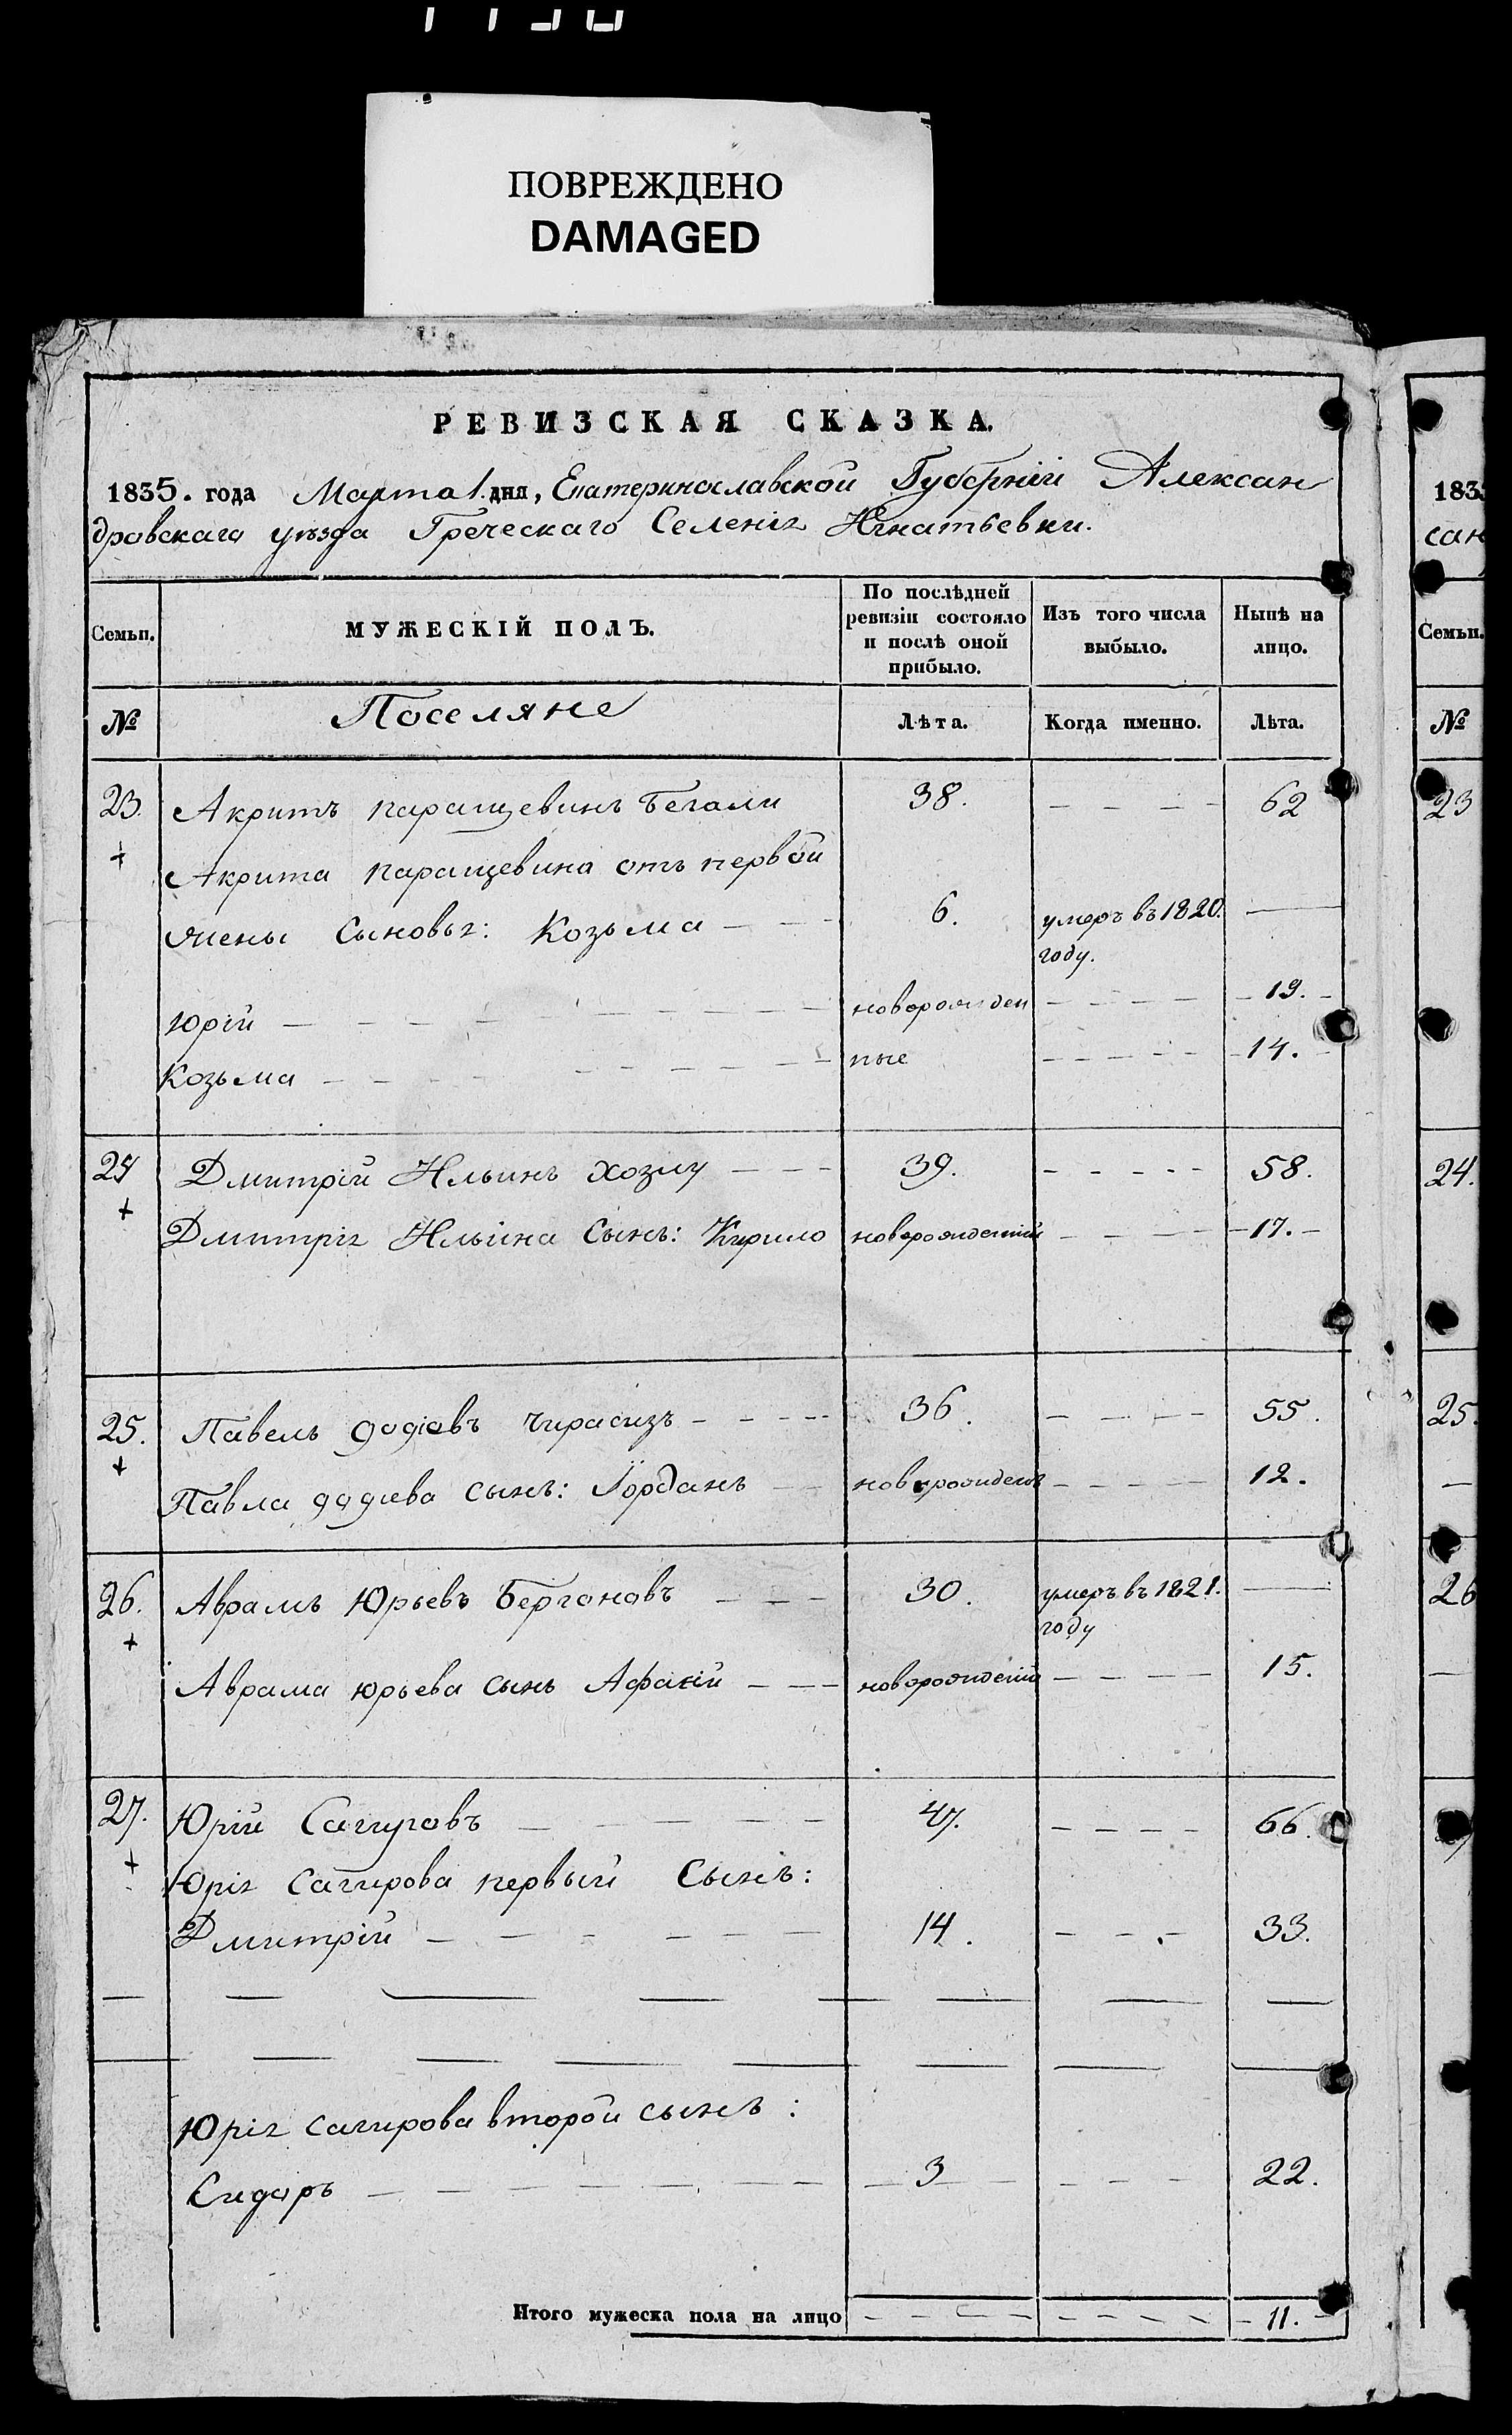 ПОВРЕЖДЕНО
DAMAGED
РЕВИЗСКАЯ СКАЗКА.
1835. года Марта 1. дня, Екатеринославской Губерніи Алексан
дровскаго уѣзда Греческаго Селенія Игнатьевки.
Семьи. МУЖЕСКІЙ ПОЛЪ. По послѣдней ревизіи состояло и послѣ оной прибыло. Изъ того числа выбыло. Нынѣ на лицо.
№ Поселяне Лѣта. Когда именно. Лѣта.
23. Акритъ Паращевинъ Бегали 38. 62
Акрита Паращевина отъ первой
жены Сыновья: Козьма 6. умеръ въ 1820. году.
Юрій новорожден 19.
Козьма ные 14.
24 Дмитрій Ильинъ Хозлу 39. 58.
Дмитрія Ильина Сынъ: Кирило новорожденный 17.
25. Павелъ Чирасизъ 36. 55.
Павла сынъ: Іорданъ новорожденъ 12.
26. Аврамъ Юрьевъ Бергановъ 30. умеръ въ 1821. году
Аврама юрьева сынъ новорожденій 15.
27. Юрій Сагировъ 47. 66.
Юрія Сагирова первый Сынъ:
Дмитрій 14. 33.
Юрія Сагирова второй сынъ:
Сидоръ 3 22.
Итого мужеска пола на лицо 11.
183
сан
Семьи.
№
23
24.
25.
26